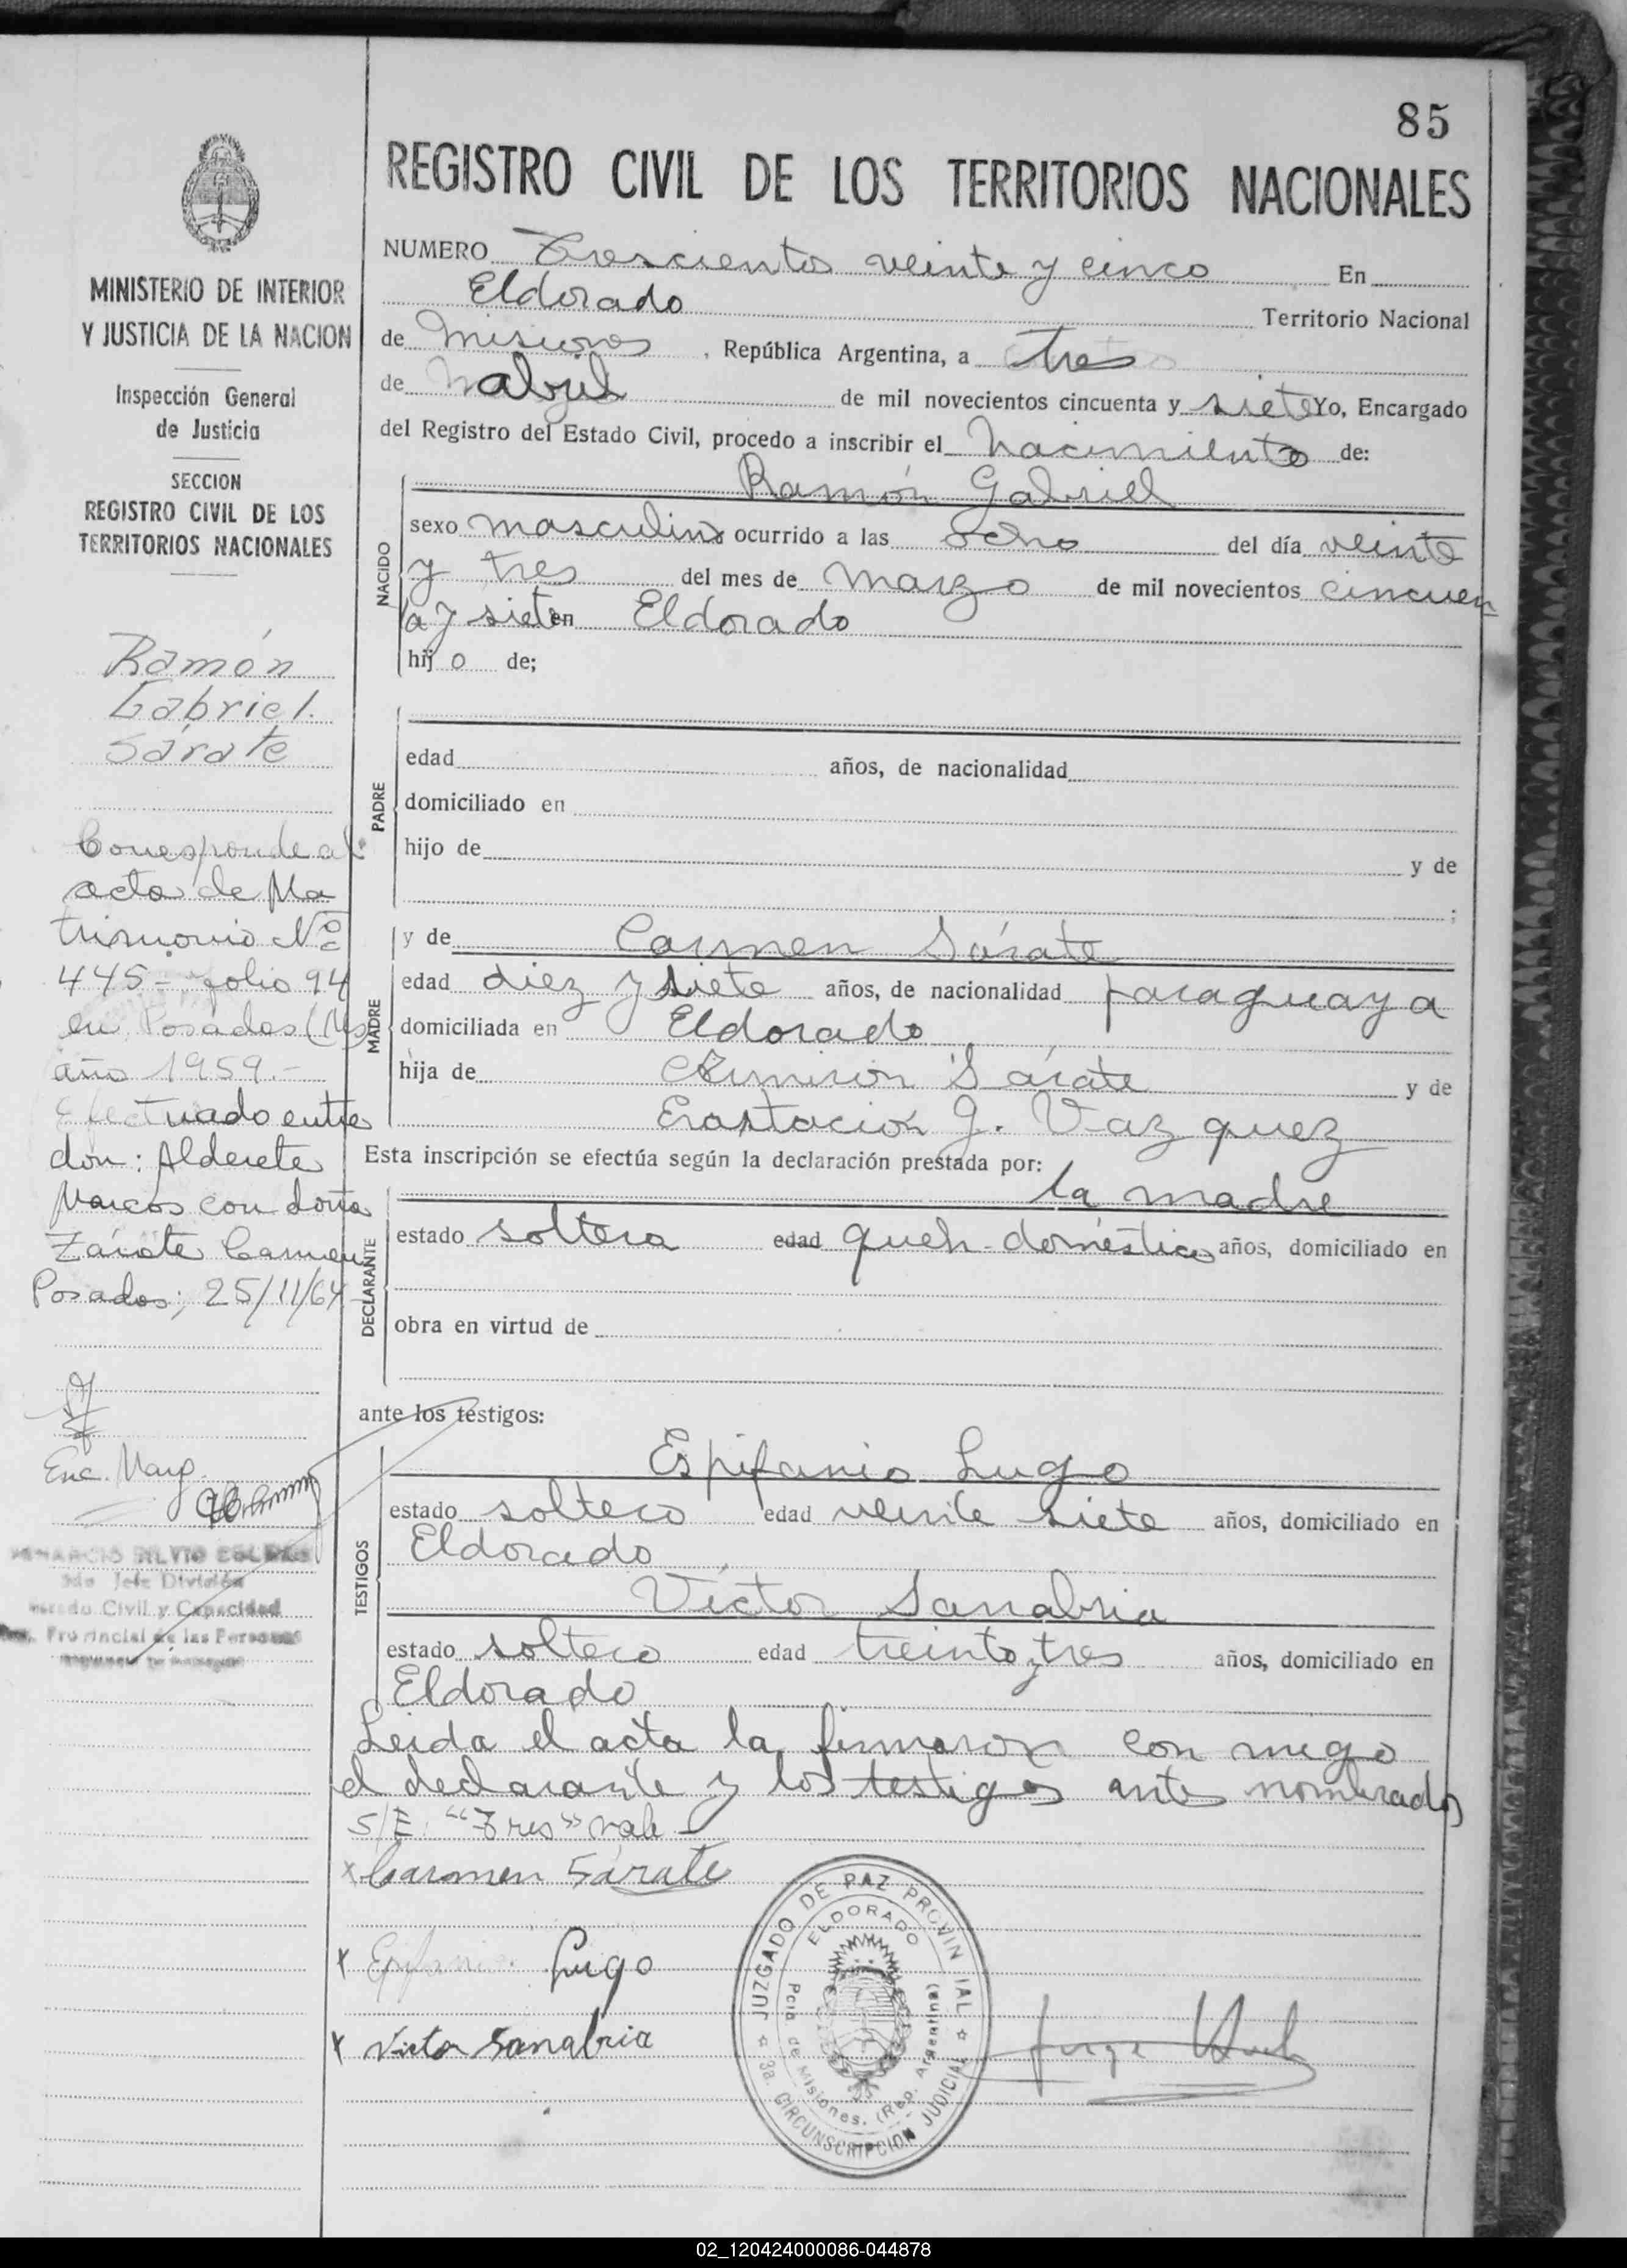 85
REGISTRO CIVIL DE LOS TERRITORIOS NACIONALES
MINISTERIO DE INTERIOR
Y JUSTICIA DE LA NACION
Inspección General
de Justicia
SECCION
REGISTRO CIVIL DE LOS
TERRITORIOS NACIONALES
Ramón
Gabriel.
Sárate
Corresponde al
acta de Ma
trimonio Nº
445 - folio 94
en Posadas (Ms)
año 1959.-
Efectuado entre
don: Alderete
Marcos con doña
Zárate Carmen
Posadas; 25/11/64
Enc. Marg.
SILVIO
Jefe División
Civil y Capacidad
Provincial de las Personas
NUMERO Trescientos veinte y cinco En
Eldorado Territorio Nacional
de Misiones, República Argentina, a tres
de abril de mil novecientos cincuenta y siete Yo, Encargado
del Registro del Estado Civil, procedo a inscribir el nacimiento de:
NACIDO
Ramón Gabriel
sexo masculino ocurrido a las ocho del día veinte
y tres del mes de marzo de mil novecientos cincuen
ta y siete en Eldorado
hijo de;
PADRE
edad años, de nacionalidad
domiciliado en
hijo de y de
;
MADRE
y de Carmen Sárate
edad diez y siete años, de nacionalidad paraguaya
domiciliada en Eldorado
hija de Sárate y de
J. Vazquez
Esta inscripción se efectúa según la declaración prestada por:
DECLARANTE
la madre
estado soltera edad queh-domésticos años, domiciliado en
obra en virtud de
ante los testigos:
TESTIGOS
Espifanio Lugo
estado soltero edad veinte siete años, domiciliado en
Eldorado
Víctor Sanabria
estado soltero edad treinta y tres años, domiciliado en
Eldorado
Leida el acta la firmaron con migo
el declarante y los testigos ante nombrados
S/E: "Tres" vale
x Carmen Sárate
x Epifanio Lugo
x Victor Sanabria
JUZGADO DE PAZ PROVIN IAL
3a. CIRCUNSCRIPCION JUDICIAL
ELDORADO
Pcia. de Misiones. (Rep. Argentina)
Jorge
02_120424000086-044878